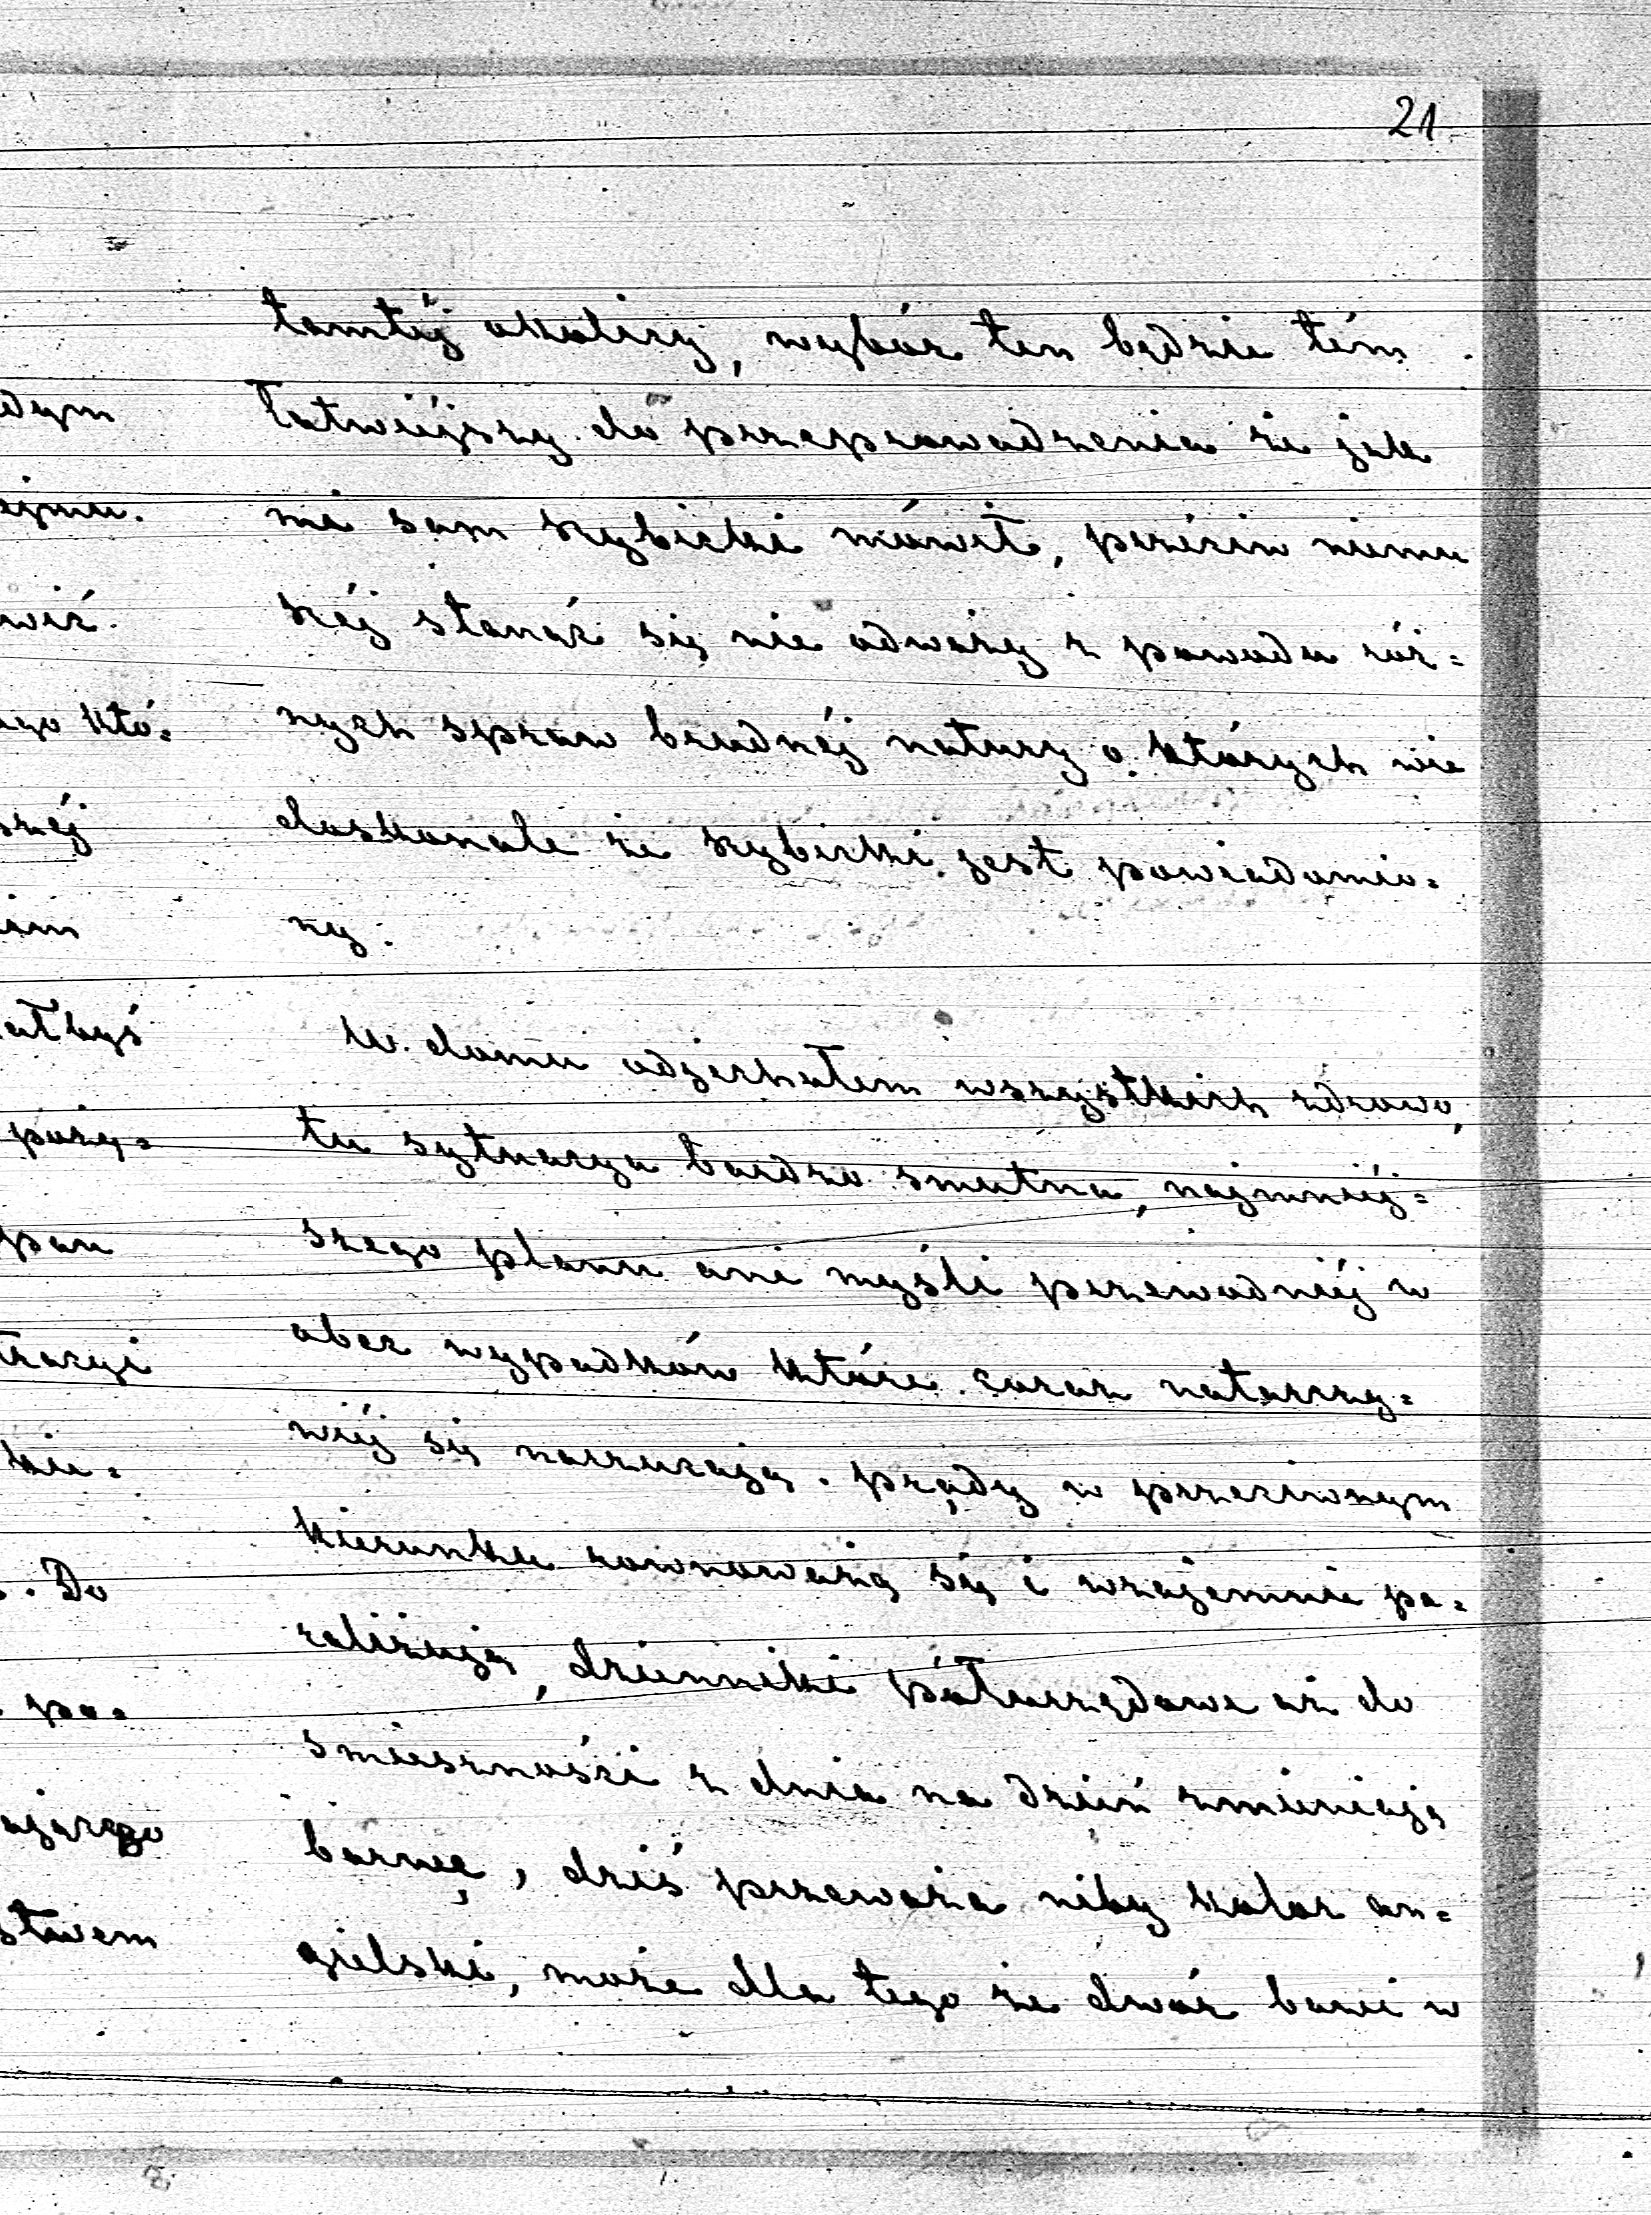 21
tamtéj okolicy, wybór ten będzie tém
łatwiéjszy do przeprowadzenia że jak
mi sam Zybicki mówił, przeciw niemu
stanąć się nie odważy z powodu róż=
nych spraw brudnéj natury o których wie
doskonale że Zybicki jest powiadomio=
ny.
W domu odjechałem wszystkich zdrowo,
tu sytuacya bardzo smutna, najmniéj=
szego planu ani myśli przewodniéj w
obec wypadków które coraz natarczy=
wiéj się narzucają. prądy w przeciwnym
kierunku rownoważą się i wzajemnie pa=
raliżują, dzienniki półurzędowe aż do
smieszności z dnia na dzień zmieniają
barwę, dziś przeważa niby kolor an=
gielski, może dla tego że dwór bawi w
dym
ejmu.
wić.
ego któ=
széj
im
ałbyś
pozy=
pan
kie=
. Do
po=
ającego
stwem